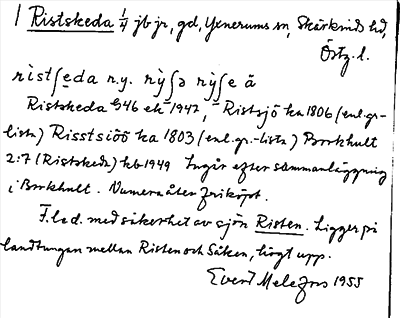 Ristskeda 1/4 jb jr, gd, Yxnerums sn, Skärkinds hd,
Östg. l.
rist∫e̱da n.y. rỳ∫ə rỳ∫e å
Ristskeda G46 ek 1947, – Ristsjö ka 1806 (enl. gr-
lista) Risstsiöö ka 1803 (enl. gr.-lista) Borkhult
2:7 (Ristskeda) hb 1949 Ingår efter sammanläggning
i Borkhult. Numera åter friköpt.
F. led. med säkerhet av sjön Risten. Ligger på
landtungan mellan Risten och Såken, högt upp.
Evert Melefors 1955